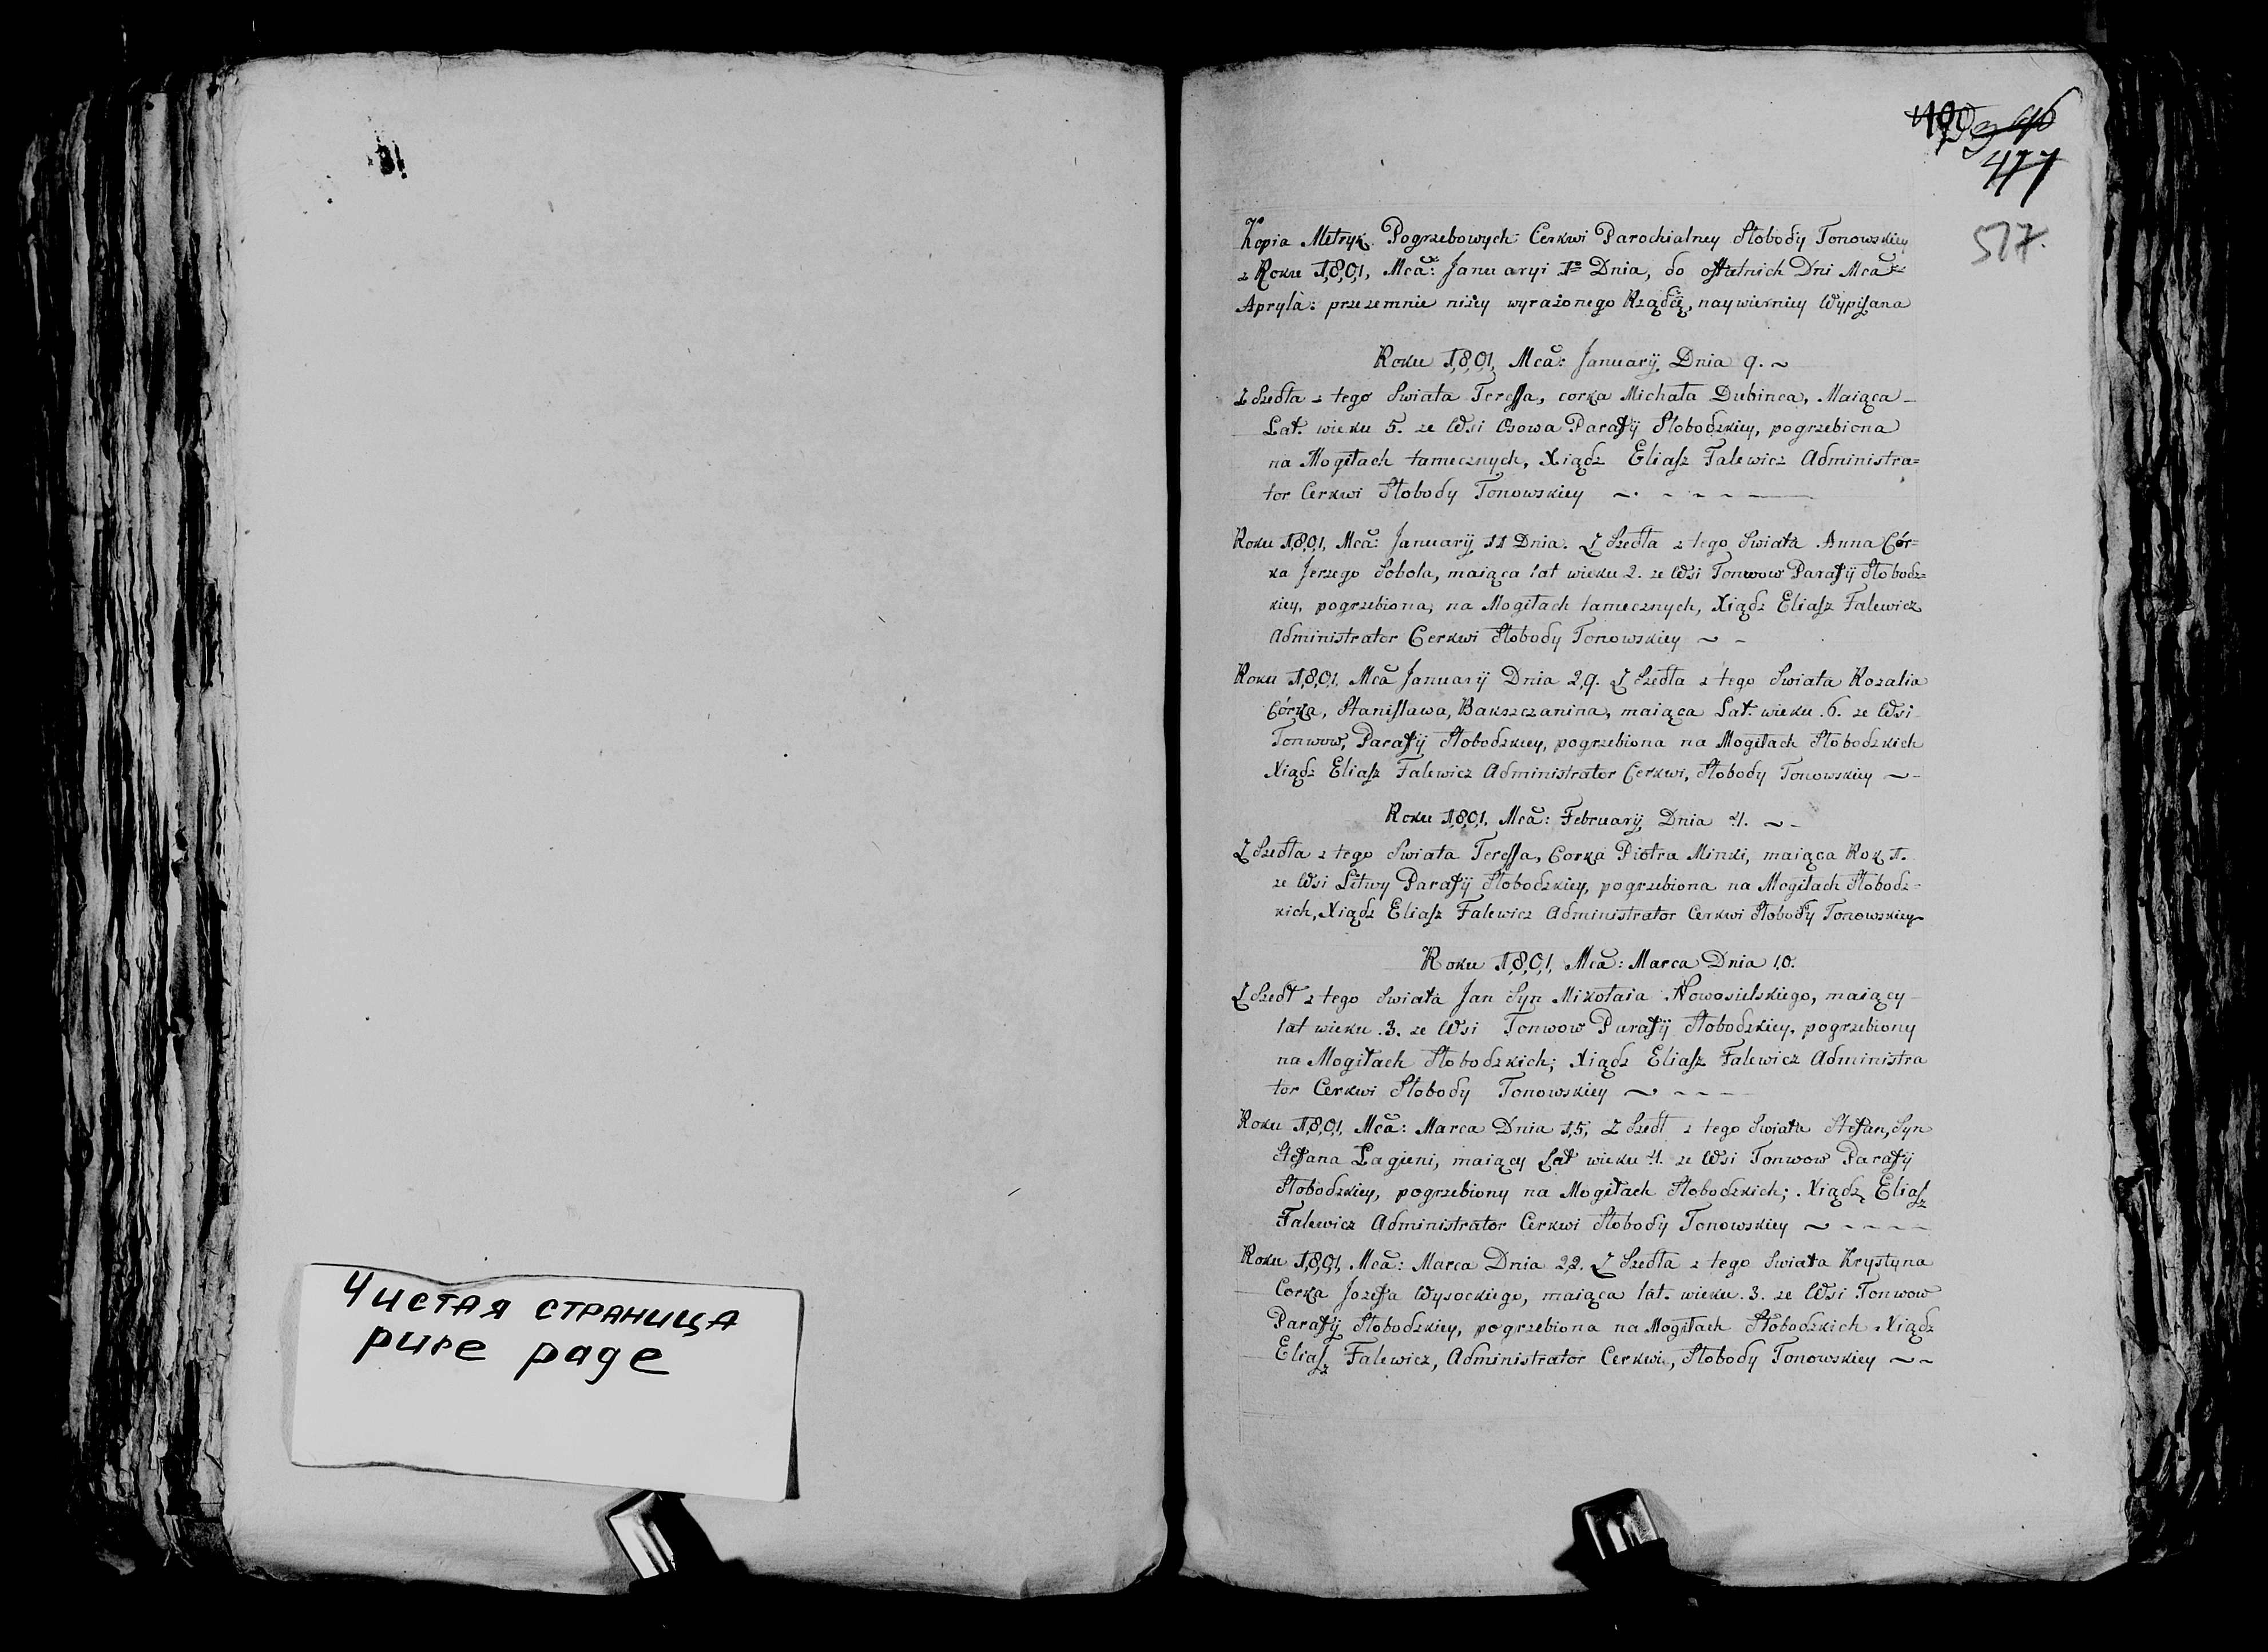 Чистая страница
pure page
477
517.
Kopia Metryk Pogrzebowych Cerkwi Parochialney Słobody Tonowskiey
z Roku 1801, Mca: Januaryi 1º Dnia, do ostatnich Dni Mca
Apryla: przezemnie niżey wyrażonego Rządcę, naywierniey Wypisana
Roku 1801 Mca: January Dnia 9. ~
Z Szedła z tego Swiata Teressa, corka Michała Dubinca, Maiąca
Lat. wieku 5. ze Wsi Osowa Parafij Słobodzkiey, pogrzebiona
na Mogiłach tamecznych, Xiądz Eliasz Falewicz Administra=
tor Cerkwi Słobody Tonowskiey ~
Roku 1801, Mca: January 11 Dnia. Z Szedła z tego Swiata Anna Cór=
ka Jerzego Sobola, maiąca lat wieku 2. ze Wsi Tonwow Parafij Słobodz=
kiey, pogrzebiona, na Mogiłach tamecznych, Xiądz Eliasz Falewicz
Administrator Cerkwi Słobody Tonowskiey ~ -
Roku 1801. Mca January Dnia 29. Z Szedła z tego Swiata Rozalia
Córka, Stanisława, Bakszczanina, maiąca Lat. wieku .6. ze Wsi
Tonwow, Parafij Słobodzkiey, pogrzebiona na Mogiłach Słobodzkich
Xiądz Eliasz Falewicz Administrator Cerkwi, Słobody Tonowskiey ~-
Roku 1801. Mca: February Dnia 4. ~-
Z Szedła z tego Swiata Teressa, Corka Piotra Minki, maiąca Rok 1.
ze Wsi Litwy Parafij Słobodzkiey, pogrzebiona na Mogiłach Słobodz=
kich, Xiądz Eliasz Falewicz Administrator Cerkwi Słobody Tonowskiey
Roku 1801, Mca: Marca Dnia 10.
Z Szedł z tego Swiata Jan Syn Mikołaia Nowosielskiego, maiący
lat wieku .3. ze Wsi Tonwow Parafij Słobodzkiey, pogrzebiony
na Mogiłach Słobodzkich; Xiądz Eliasz Falewicz Administra
tor Cerkwi Słobody Tonowskiey ~ ----
Roku 1801, Mca: Marca Dnia 15, Z Szedł z tego Swiata Stefan, Syn
Stefana Łagieni, maiący Lat wieku 4. ze Wsi Tonwow Parafij
Słobodzkiey, pogrzebiony na Mogiłach Słobodzkich; Xiądz Eliasz
Falewicz Administrator Cerkwi Słobody Tonowskiey ~ -----
Roku 1801, Mca: Marca Dnia 22. Z Szedła z tego Swiata Krystyna
Corka Jozefa Wysockiego, maiąca lat. wieku .3. ze Wsi Tonwow
Parafij Słobodzkiey, pogrzebiona na Mogiłach Słobodzkich Xiądz
Eliasz Falewicz, Administrator Cerkwi, Słobody Tonowskiey ~~